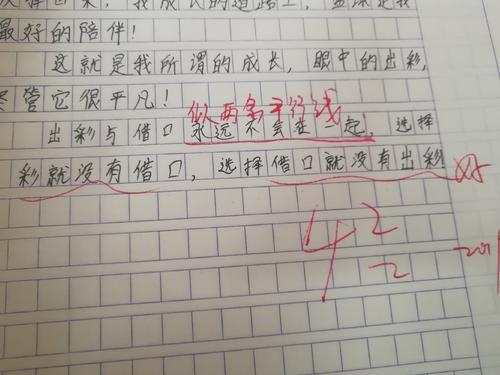 我成长的道路上，篮球是我
最好的陪伴！
这就是我所谓的成长，眼中的出彩，
尽管它很平凡！
似两条平行线
出彩与借口永远不会在一起，选择
彩就没有借口，选择借口就没有出彩 好
42
-2